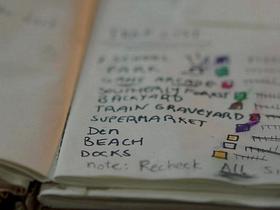 PARK
GAME ARCADE
SOUTHERLY FOREST
BACKYARD
TRAIN GRAVEYARD
SUPERMARKET
Den
BEACH
DOCKS
note: Recheck ALL